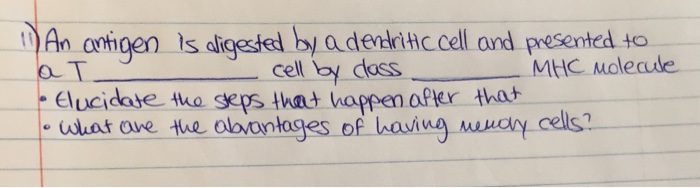 11) An antigen is digested by a dendritic cell and presented to
a T ____________ cell by class ________ MHC Molecule
• Elucidate the steps that happen after that
• What are the abvantages of having memory cells?